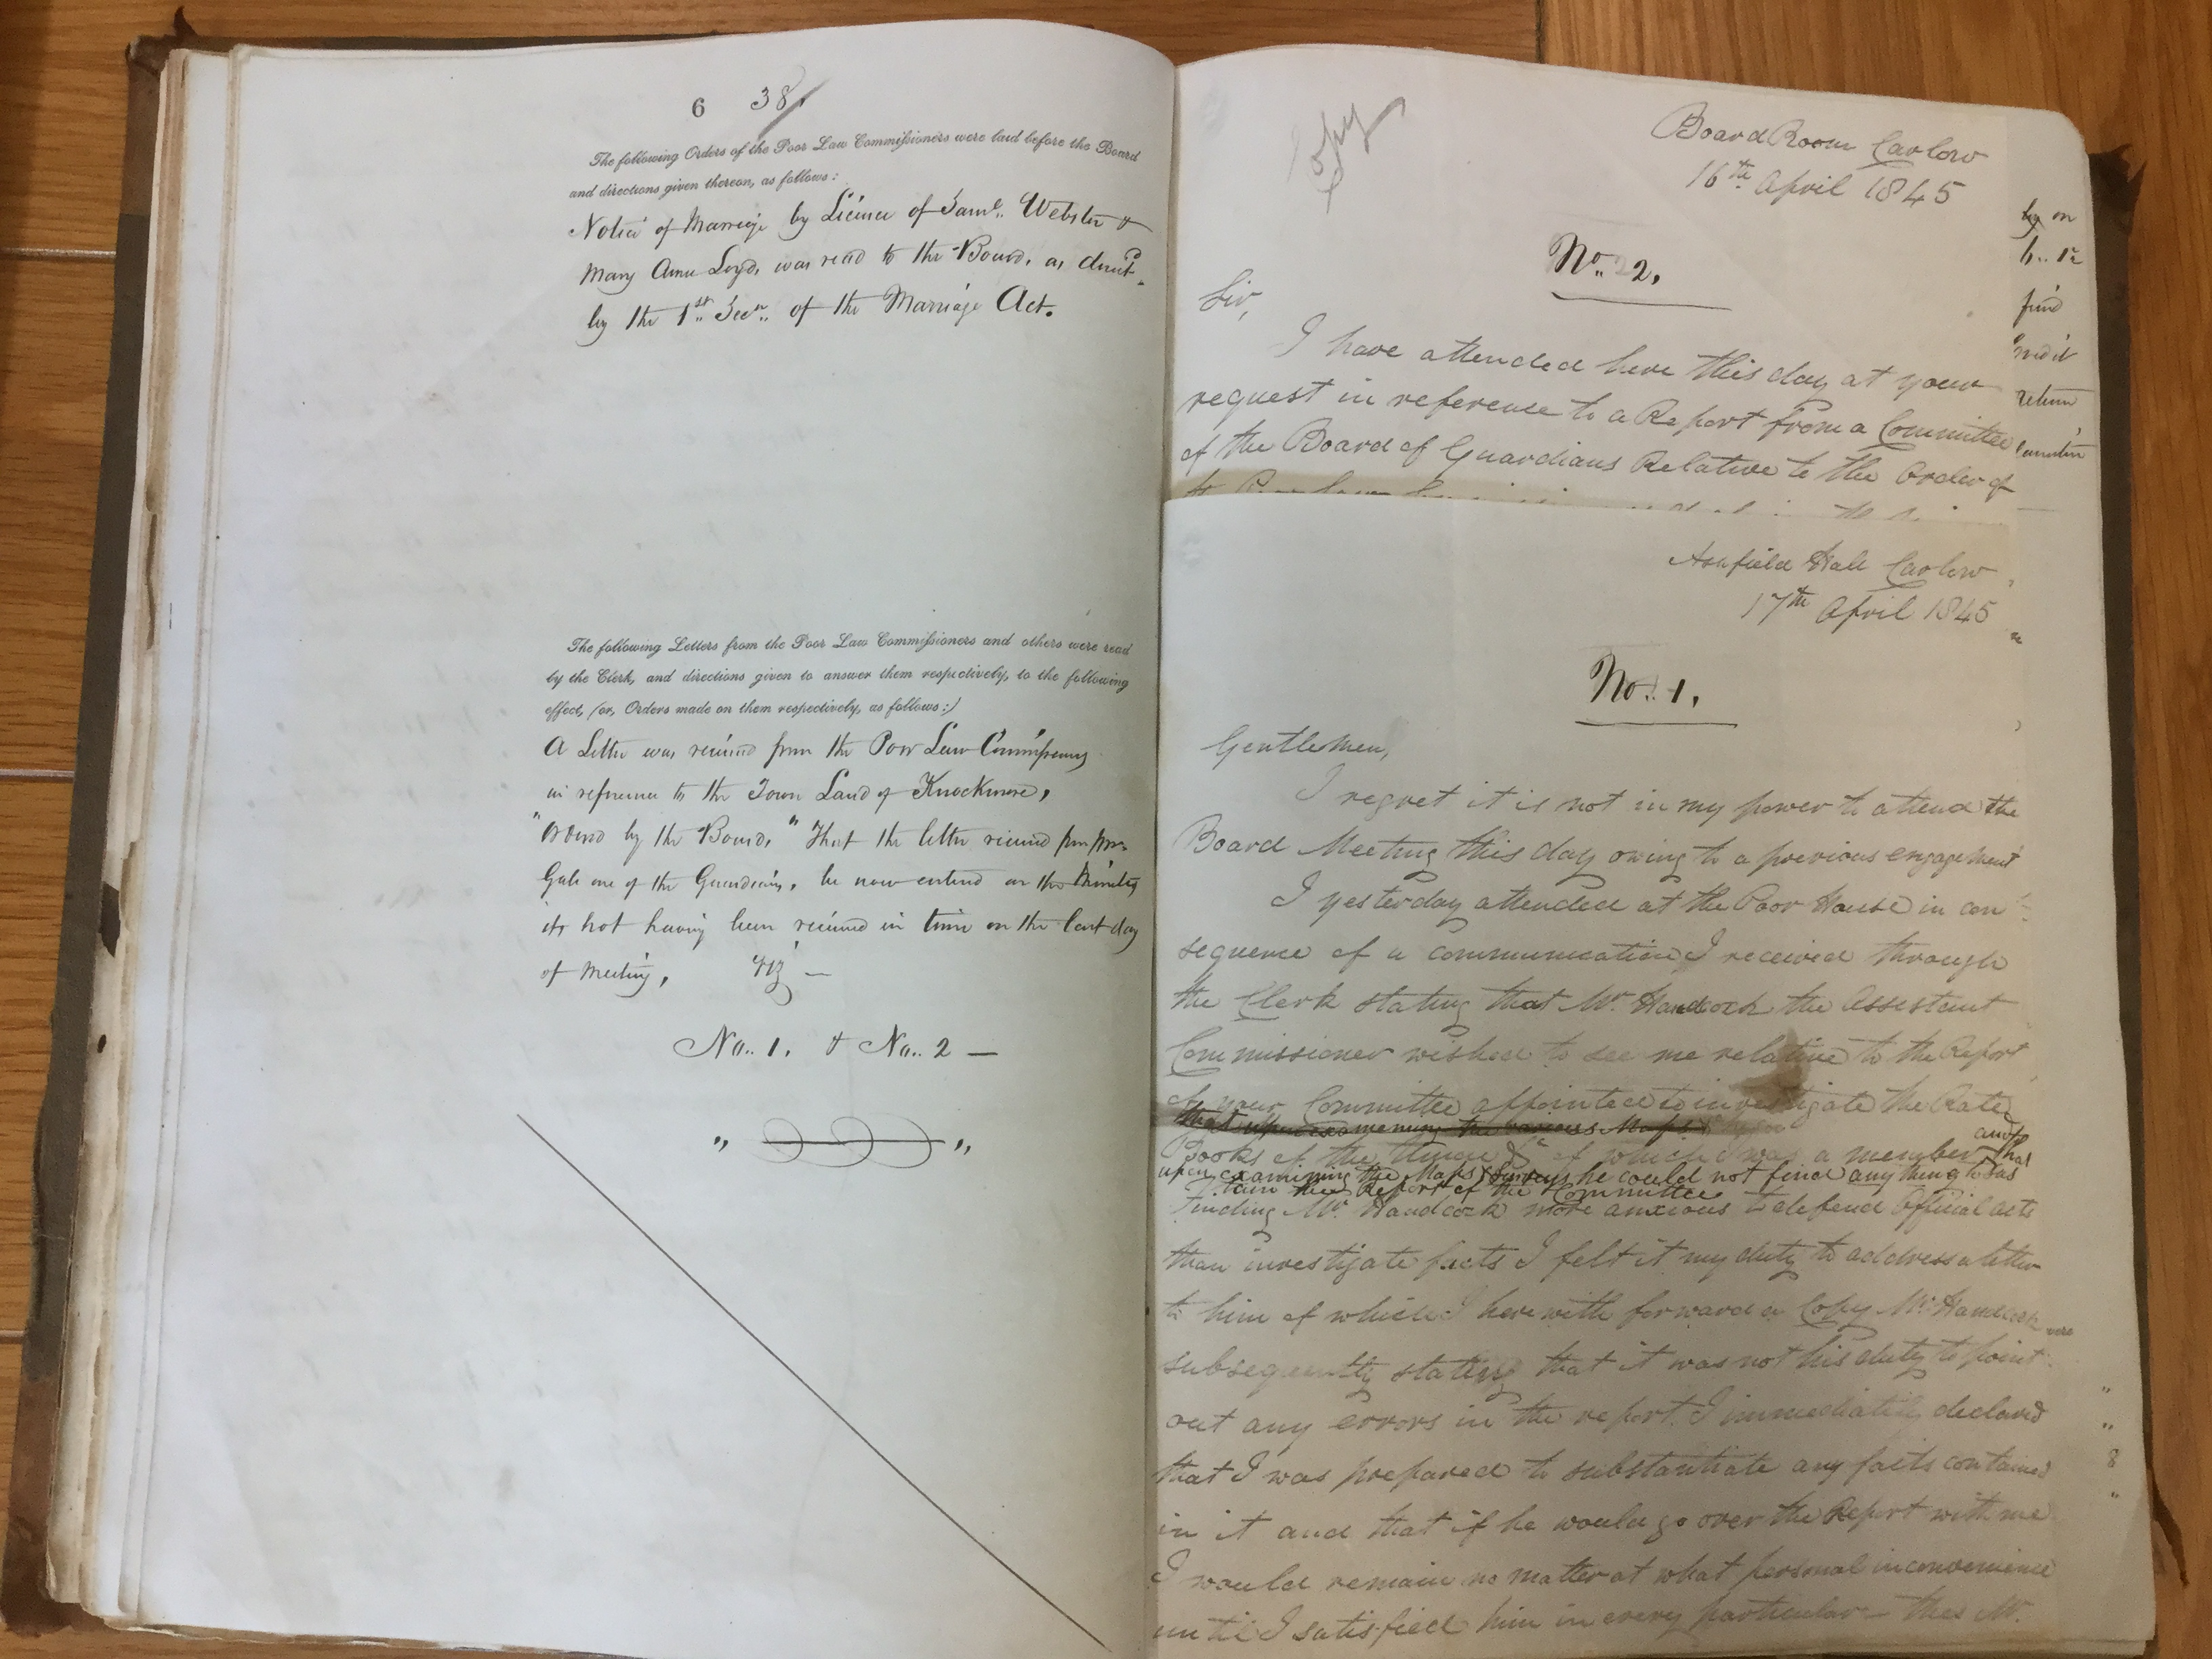 6 38
The following Orders of the Poor Law Commissioners were laid before the Board
and directions given thereon, as follows:
Notice of Marriage by Licence of Saml. Webster &
Mary Anne Loyd, was read to the Board, as direct.d
by the 1st Secn. of the Marriage Act.
The following Letters from the Poor Law Commissioners and others were read
by the Clerk, and directions given to answer them respectively, to the following
effect, (or, Orders made on them respectively, as follows:)
A Letter was received from the Poor Law Commissioners
in reference to the Town Land of Knockmore,
"Ordered by the Board," That the letter received from
Gale one of the Guardians, be now entered on the Minutes
its not having been received in time on the last day
of Meeting, Viz —
No. 1. & No. 2 —
Copy
Board Room Carlow
16th April 1845
No. 2.
Sir,
I have attended here this day at your
request in reference to a Report from a Committee
of the Board of Guardians Relative to the Order of
by on
find
credit
return
Ashfield Hall Carlow
17th April 1845
No. 1.
Gentlemen,
I regret it is not in my power to attend the
Board Meeting this day owing to a previous engagement
I yesterday attended at the Poor House in con
sequence of a communication I received through
the Clerk stating that Mr. Handcock the Assistant
Commissioner wished to see me relative to the Report
of your Committee appointed to investigate the Rate
that upon examening the various Maps
Books of the Union &c of which I was a member and that
upon examining the Maps & Surveys he could not find any thing to sus
tain the Report of the Committee
Finding Mr. Handcock more anxious to defend Official acts
than investigate facts I felt it my duty to address a letter
to him of which I herewith forward a Copy Mr. Handcock
subsequently stating that it was not his duty to point
out any errors in the report. I immediately declared
that I was prepared to substantiate any facts contained
in it and that if he would go over the Report with me
I would remain no matter at what personal inconvenience
until I satisfied him in every particular — this Mr.